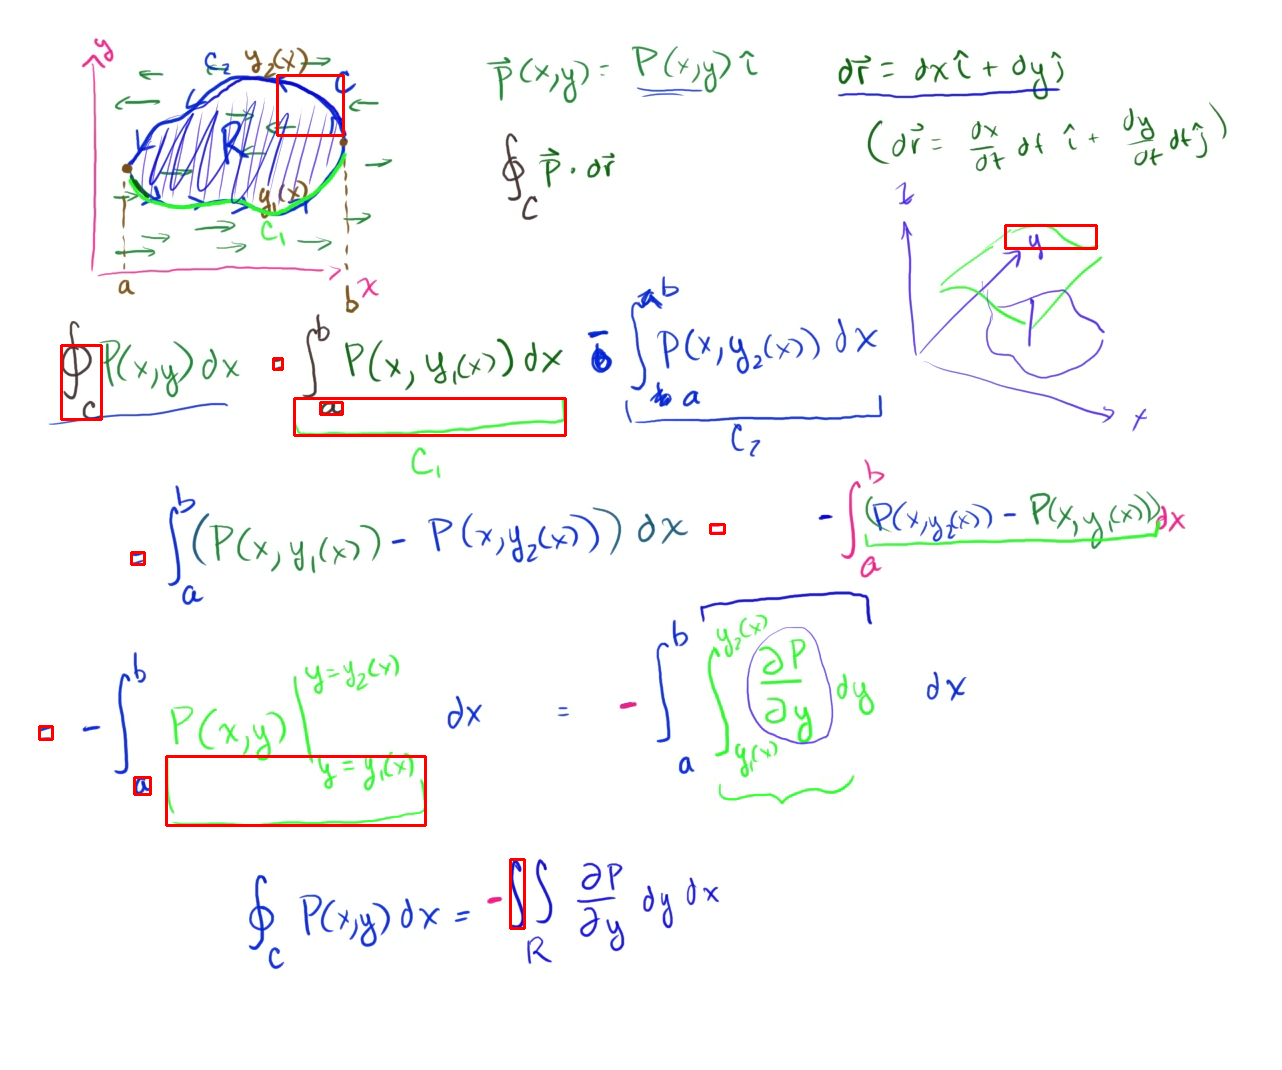 y
C₂ y₂(x) C
R
y₁(x)
C₁
a b x
P⃗(x,y) = P(x,y) î
∮_C P⃗ · dr⃗
dr⃗ = dx î + dy ĵ
(dr⃗ = dx/dt dt î + dy/dt dt ĵ)
z
y
x
∮_C P(x,y) dx = ∫_a^b P(x, y₁(x)) dx - ∫_a^b P(x, y₂(x)) dx
C₁ C₂
= ∫_a^b (P(x, y₁(x)) - P(x, y₂(x))) dx = - ∫_a^b (P(x, y₂(x)) - P(x, y₁(x))) dx
= - ∫_a^b P(x,y) |_{y = y₁(x)}^{y = y₂(x)} dx = - ∫_a^b ∫_{y₁(x)}^{y₂(x)} ∂P/∂y dy dx
∮_C P(x,y) dx = - ∫∫_R ∂P/∂y dy dx